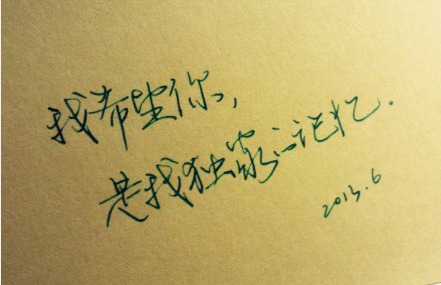 我希望你，
是我独家的记忆．
2013.6